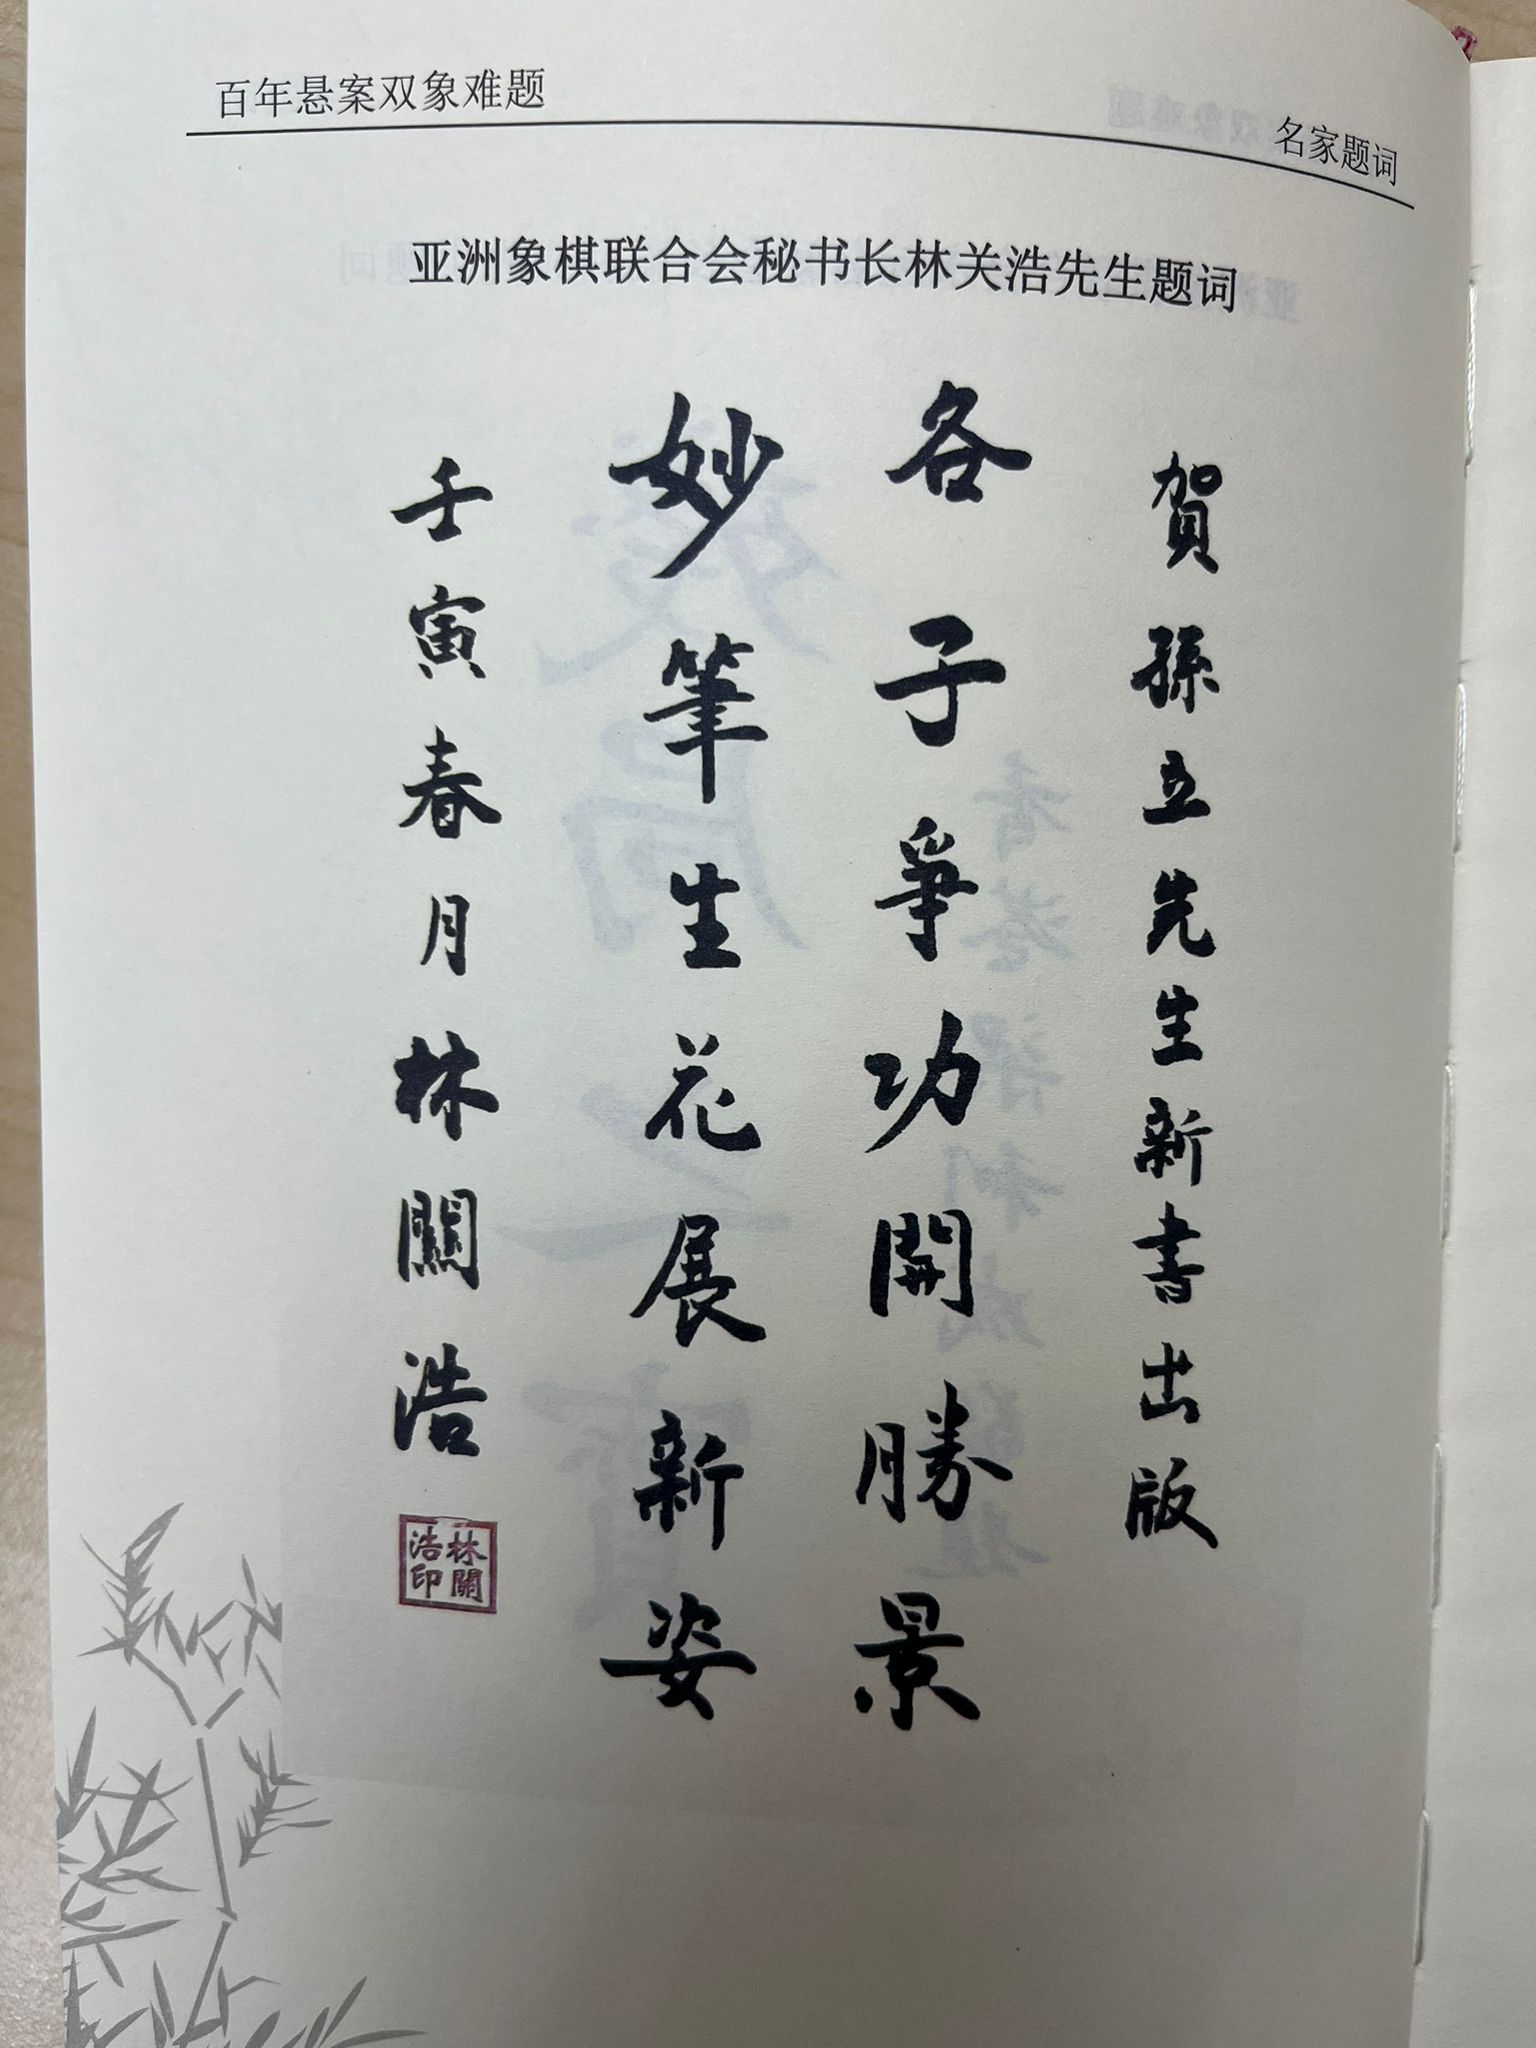 百年悬案双象难题
名家题词
亚洲象棋联合会秘书长林关浩先生题词
賀孫立先生新書出版
各子爭功開勝景
妙筆生花展新姿
壬寅春月林關浩
林關
浩印